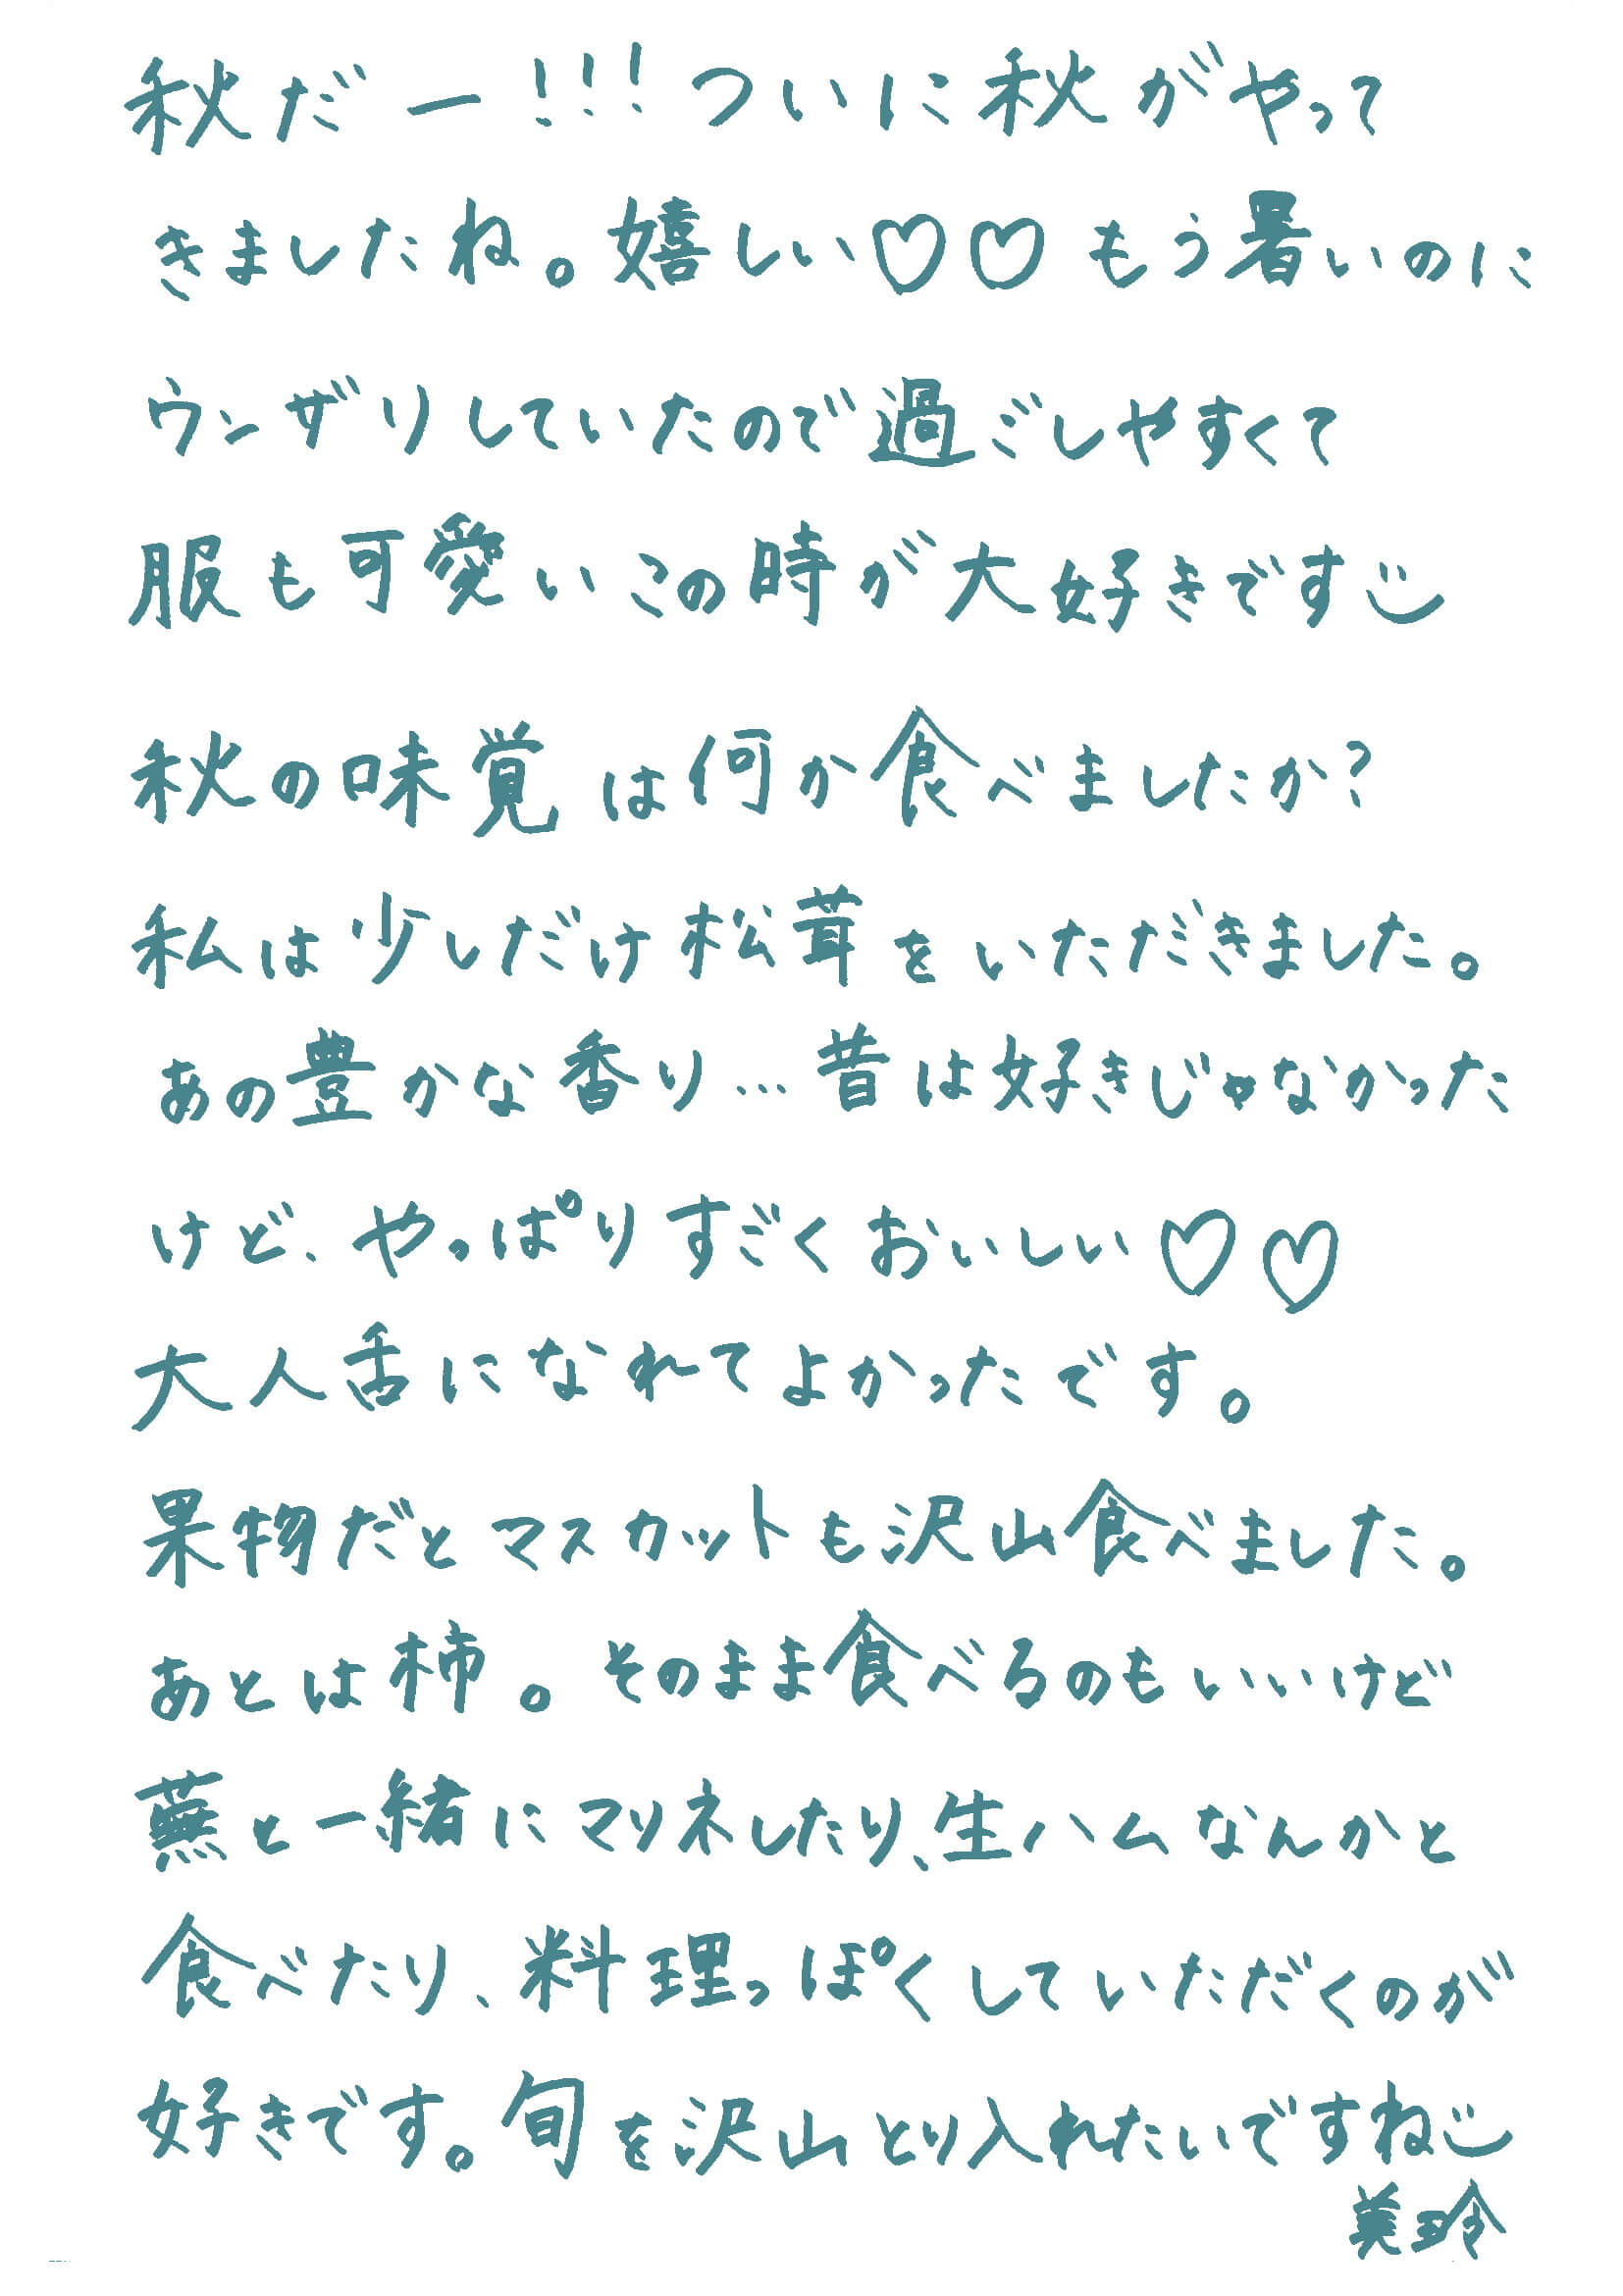 秋だー!!!ついに秋がやって
きましたね。嬉しい♡♡もう暑いのに
ウンザリしていたので過ごしやすくて
服も可愛いこの時が大好きです
秋の味覚は何か食べましたか?
私は少しだけ松茸をいただきました。
あの豊かな香り…昔は好きじゃなかった
けど、やっぱりすごくおいしい♡♡
大人舌になれてよかったです。
果物だとマスカットも沢山食べました。
あとは柿。そのまま食べるのもいいけど
蕪と一緒にマリネしたり、生ハムなんかと
食べたり、料理っぽくしていただくのが
好きです。旬を沢山とり入れたいですね
美玲